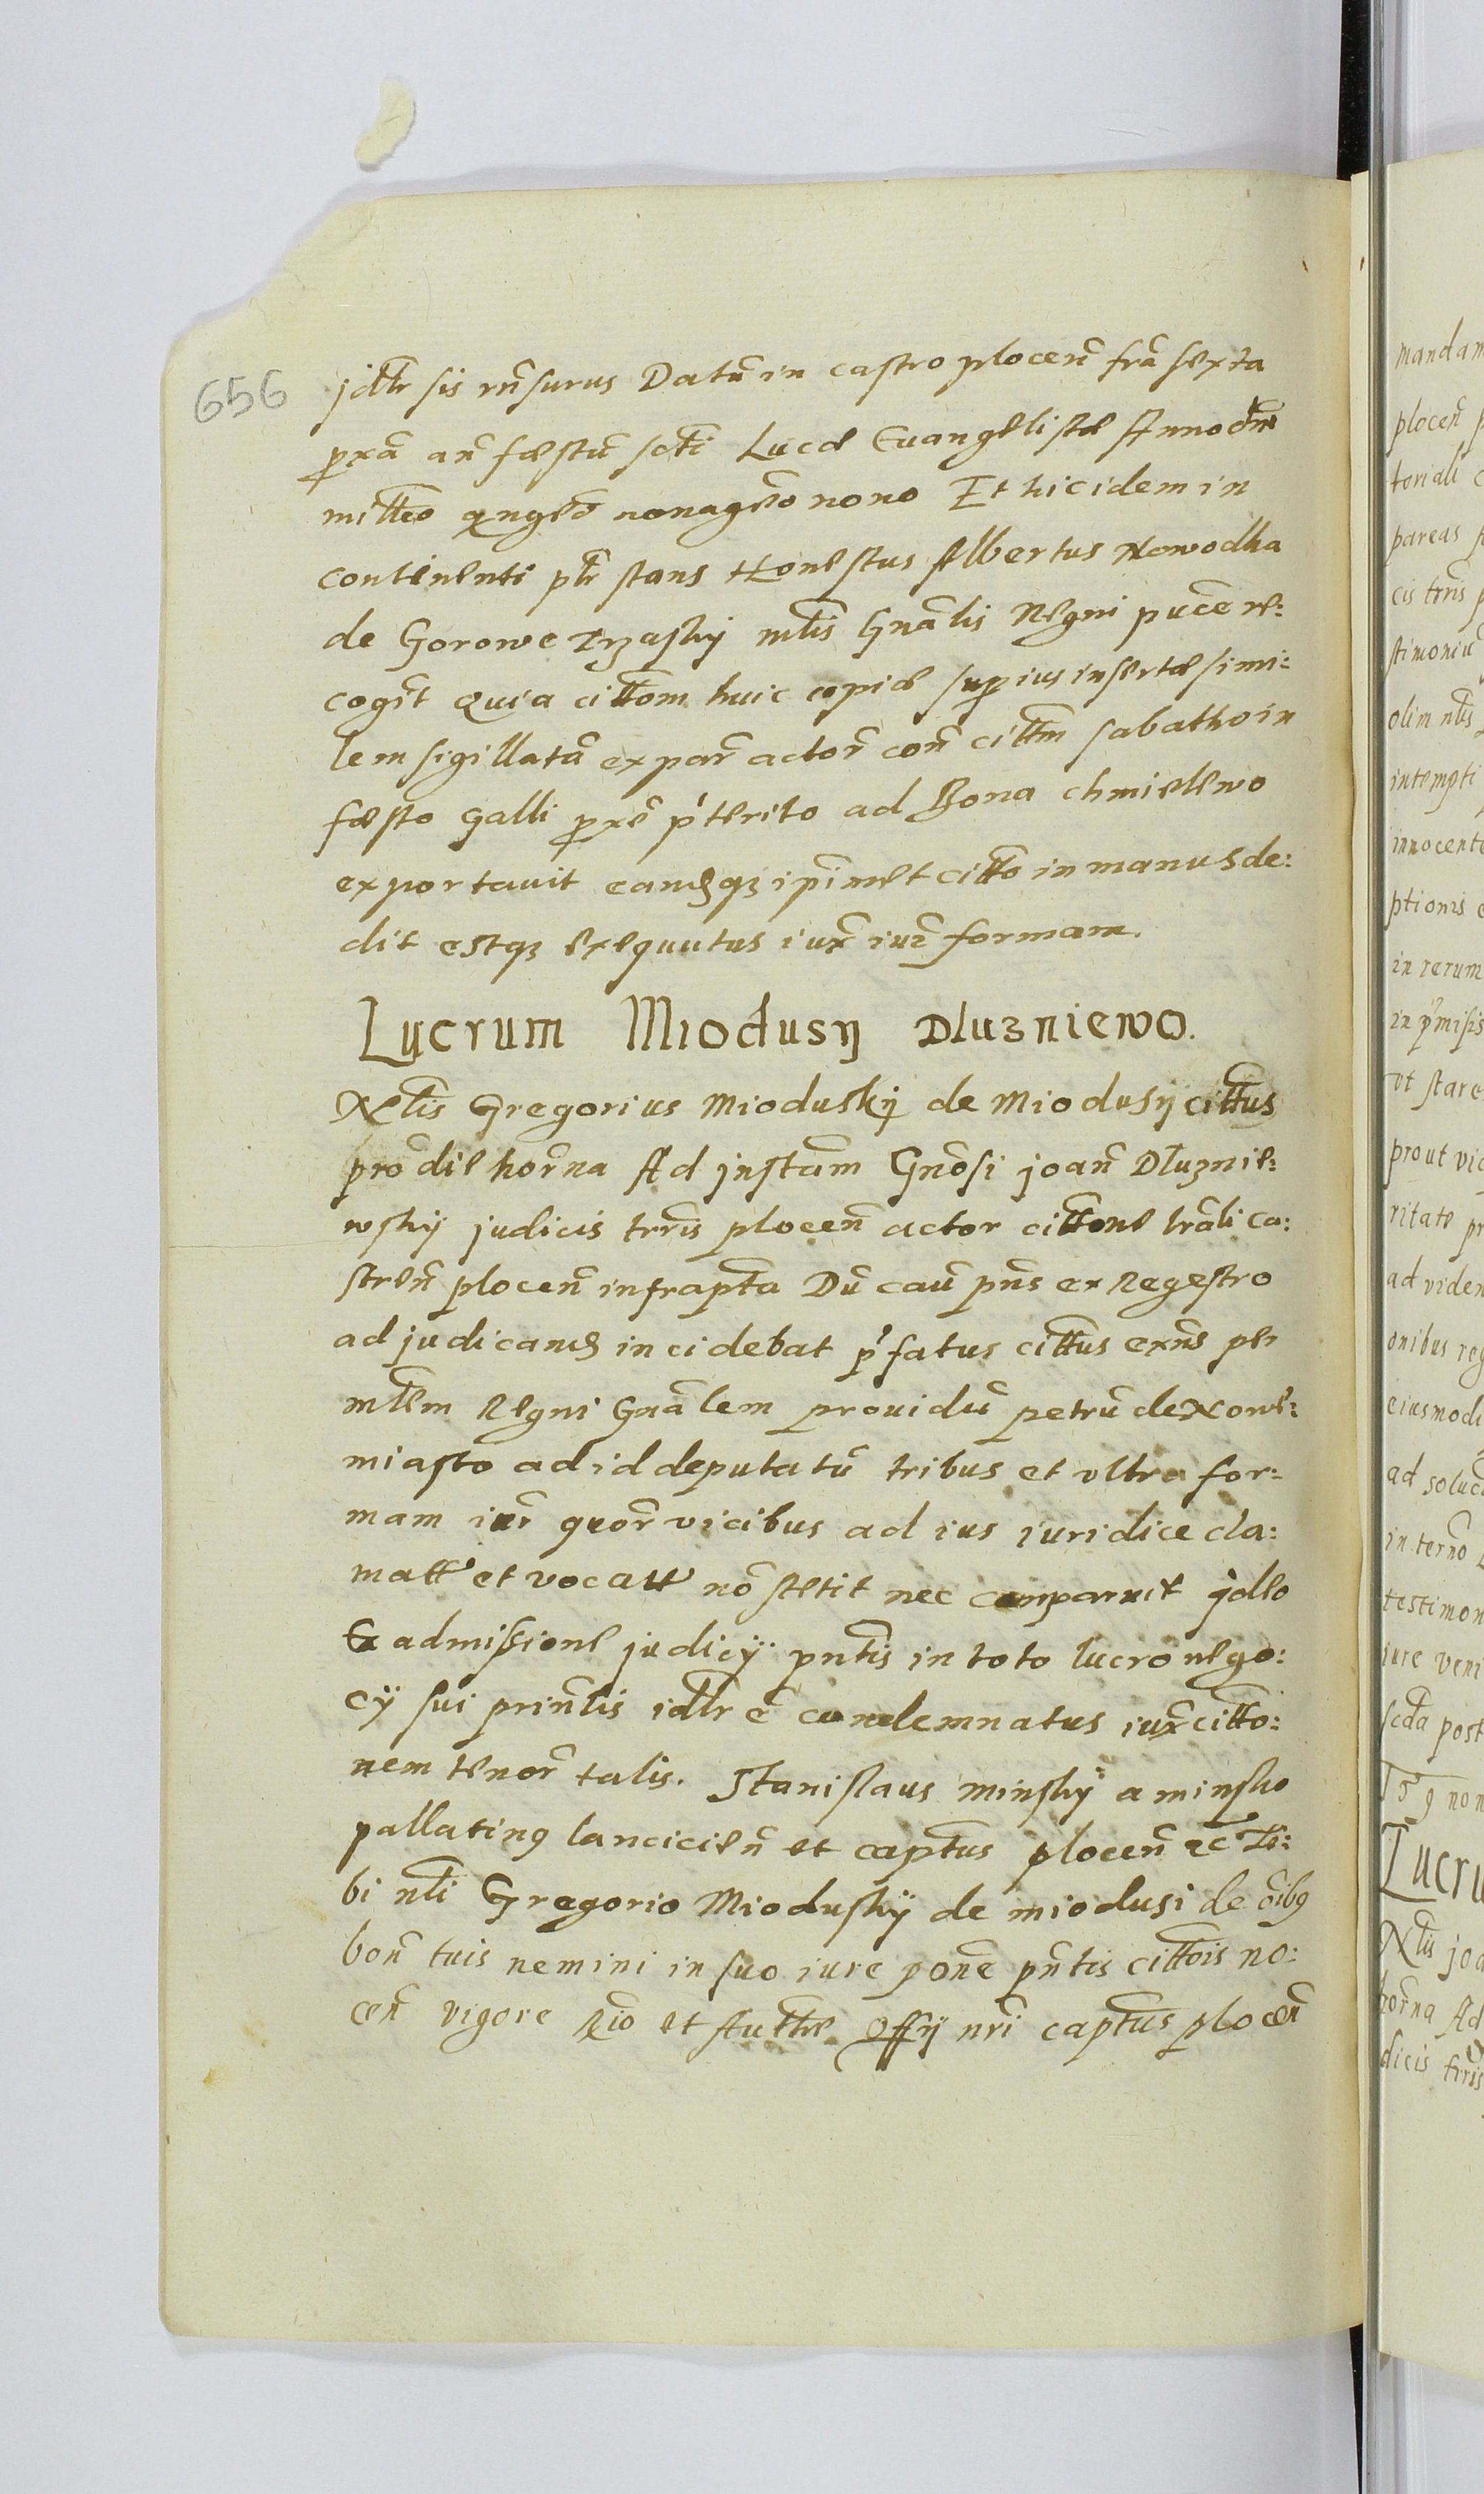 656
jdtr sis rn̄surus Datū in castro plocen̄ fr̄a sexta
pxā an̄ fæstū scti Lucæ Euangelistæ Anno dn̄i
mitteo qngēo nonagēo nono Et hic idem in
continenti ptr stans Honestus Albertus Nowodka
de Gorowe Trzasky mtis Gnālis Regni pucē re:
cogīt Quia cittom huic copiæ superius insertæ simi:
lem sigillatā ex par̄ actor̄ con̄ cittm̄ sabatho in
fæsto Galli pxē p'terito ad Bona chmielewo
exportauit eamqz ipimet citto in manus de:
dit estqz exequutus iux̄ iur̄ formam.
Lucrum Miodusy Dluzniewo.
Nlis Gregorius Miodusky de Miodusy cittus
pro die horna Ad jnstam Gnosi joan̄ Dluznie:
wsky judicis trris plocen̄ actor cittone trāli ca:
stren̄ plocen̄ infrapta Dū cau pn̄s ex Regestro
ad judicand incidebat p'fatus cittus exn̄s per
mtem Regni Gnālem prouidū petrū de Nowe:
miasto ad id deputatū tribus et vltra for:
mam iur̄ quor̄ vicibus ad ius iuridice cla:
matt et vocatt nō stetit nec comparuit jdeo
Ex admissione judicÿ pntis in toto lucro nego:
cÿ sui prin̄lis idtr ē condemnatus iux̄ citto:
nem tenor̄ talis. Stanislaus minsky a minsko
pallatinq lancicien̄ et captus plocen̄ zc Ti:
bi nli Gregorio Mioduskÿ de miodusi de oībq
bon̄ tuis nemini in suo iure ponē pn̄tis cittois no:
cen̄ vigore Rio et Autthe Offÿ nr̄i captus plocen̄
mandam
plocen̄ p
toriali c
pareas
cis trris p
stimoniū
olim nlis
intempti
innocente
ptionis
in rerum
in p'misis
vt stare
prout vic
ritate pr
ad viden
onibus reg
eiusmodi
ad soluc
in tern̄o
testimon
iure veni
scda post
non
Lucru
Nlis joa
horna Ad
dicis trris